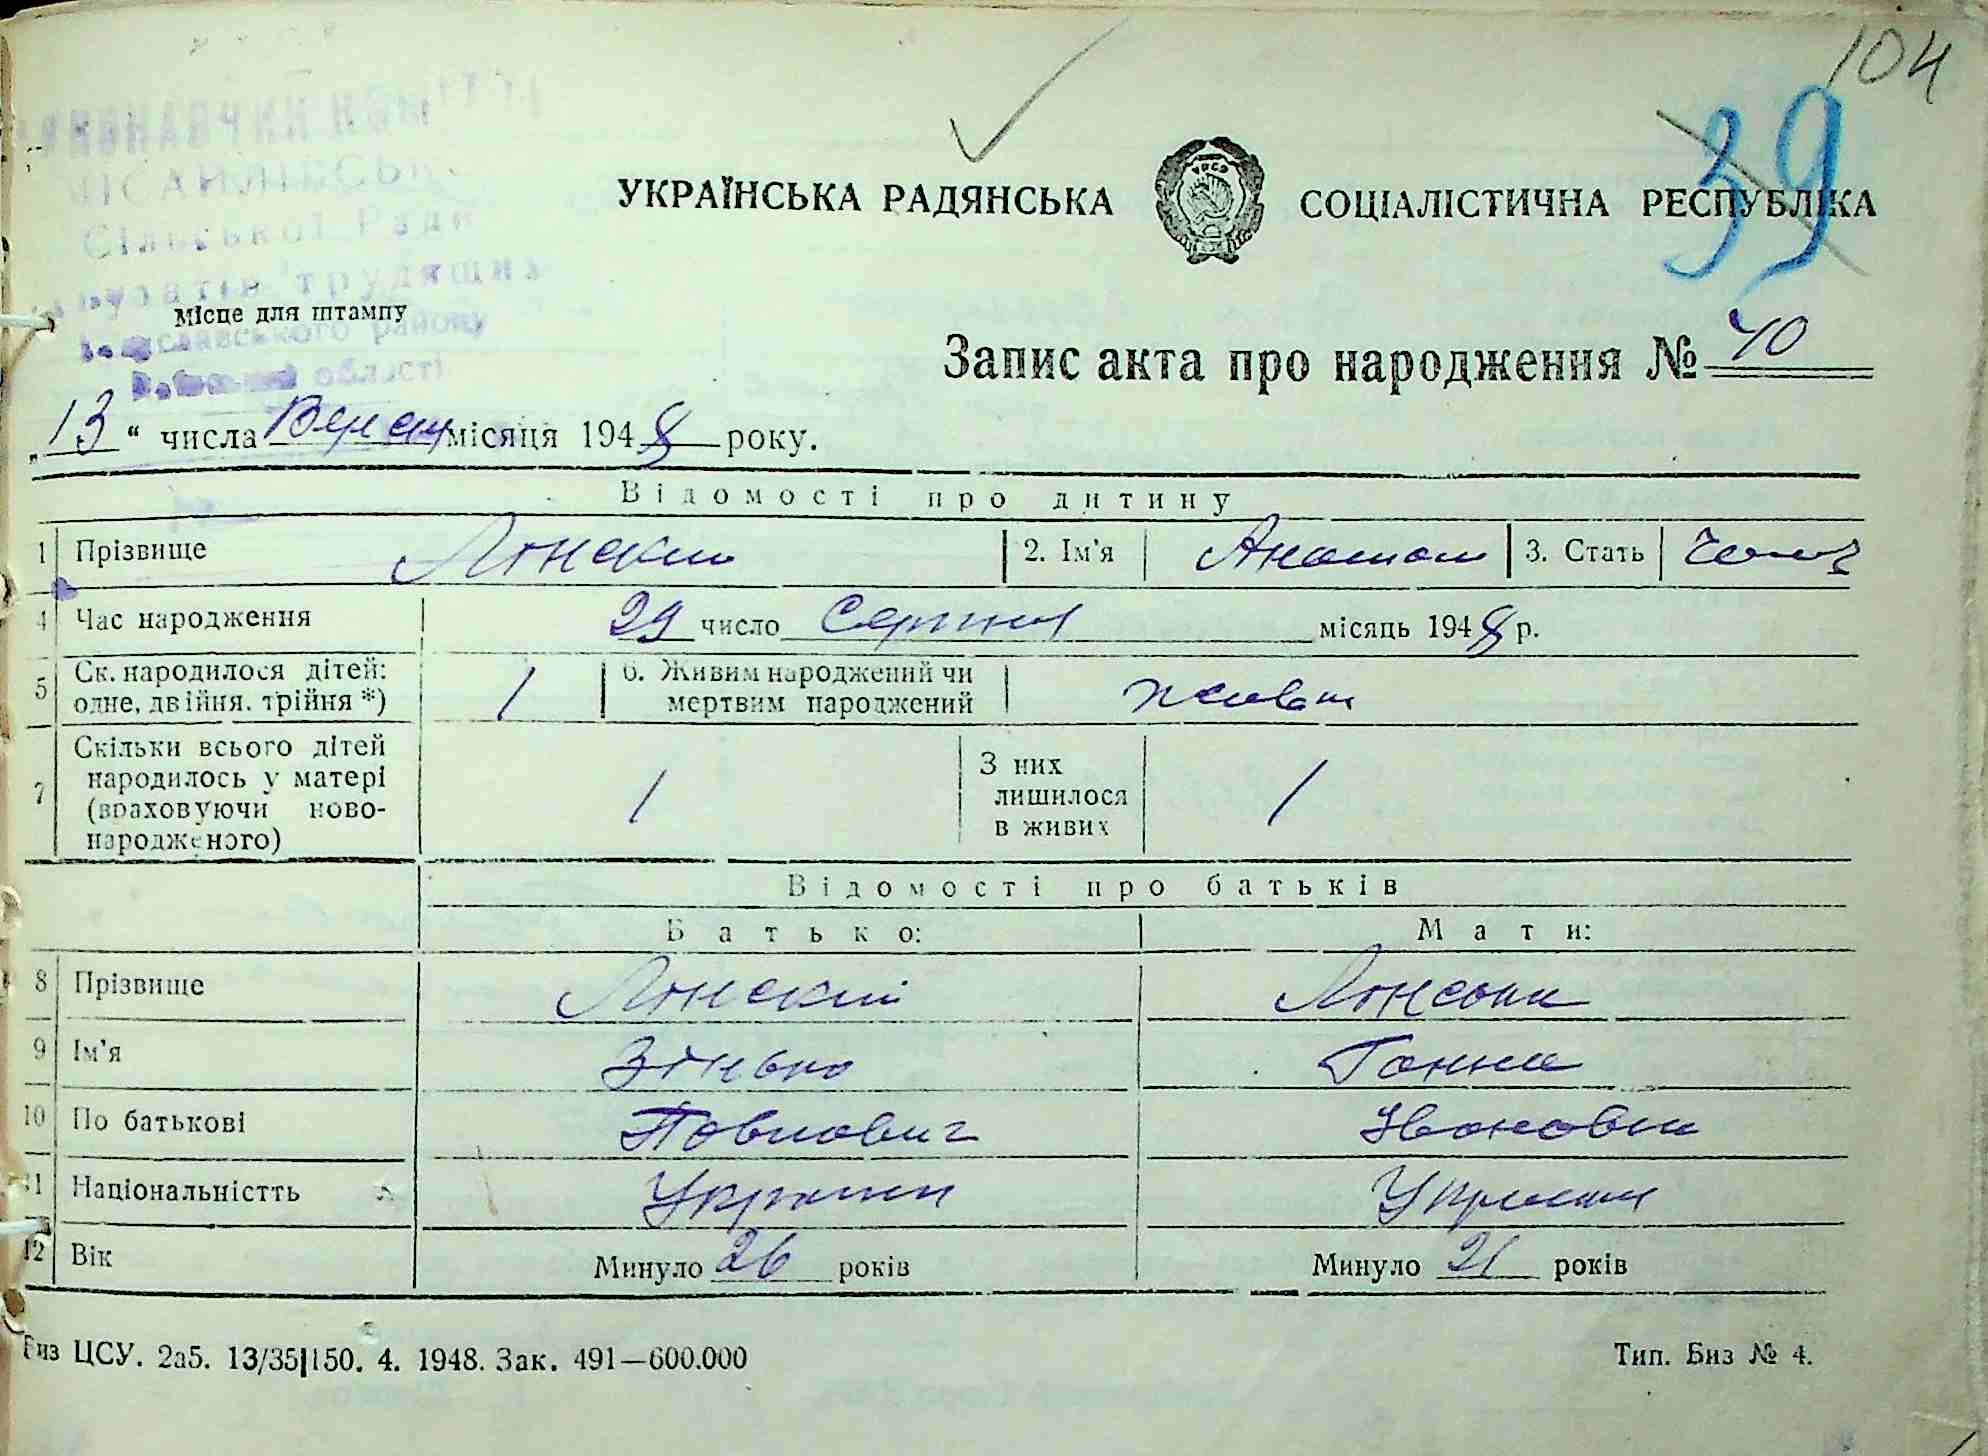 104
39
УКРАЇНСЬКА РАДЯНСЬКА СОЦІАЛІСТИЧНА РЕСПУБЛІКА
Сільської Ради
трудящих
Місце для штампу
району
області
Запис акта про народження № 40
„13“ числа Верес місяця 1948 року.
Відомості про дитину
1 Прізвище Лонский 2. Ім'я Анатол 3. Стать Чолов
4 Час народження 29 число Серпня місяць 1948 р.
5 Ск. народилося дітей: одне, двійня. трійня *) 1 6. Живим народжений чи мертвим народжений живим
7 Скільки всього дітей народилось у матері (враховуючи ново-народженого) 1 З них лишилося в живих 1
Відомості про батьків
Батько: Мати:
8 Прізвище Лонский Лонська
9 Ім'я Зінько Ганна
10 По батькові Павлович Івановна
11 Національністть Украин Украин
12 Вік Минуло 26 років Минуло 21 років
Биз ЦСУ. 2а5. 13/35|150. 4. 1948. Зак. 491—600.000 Тип. Биз № 4.